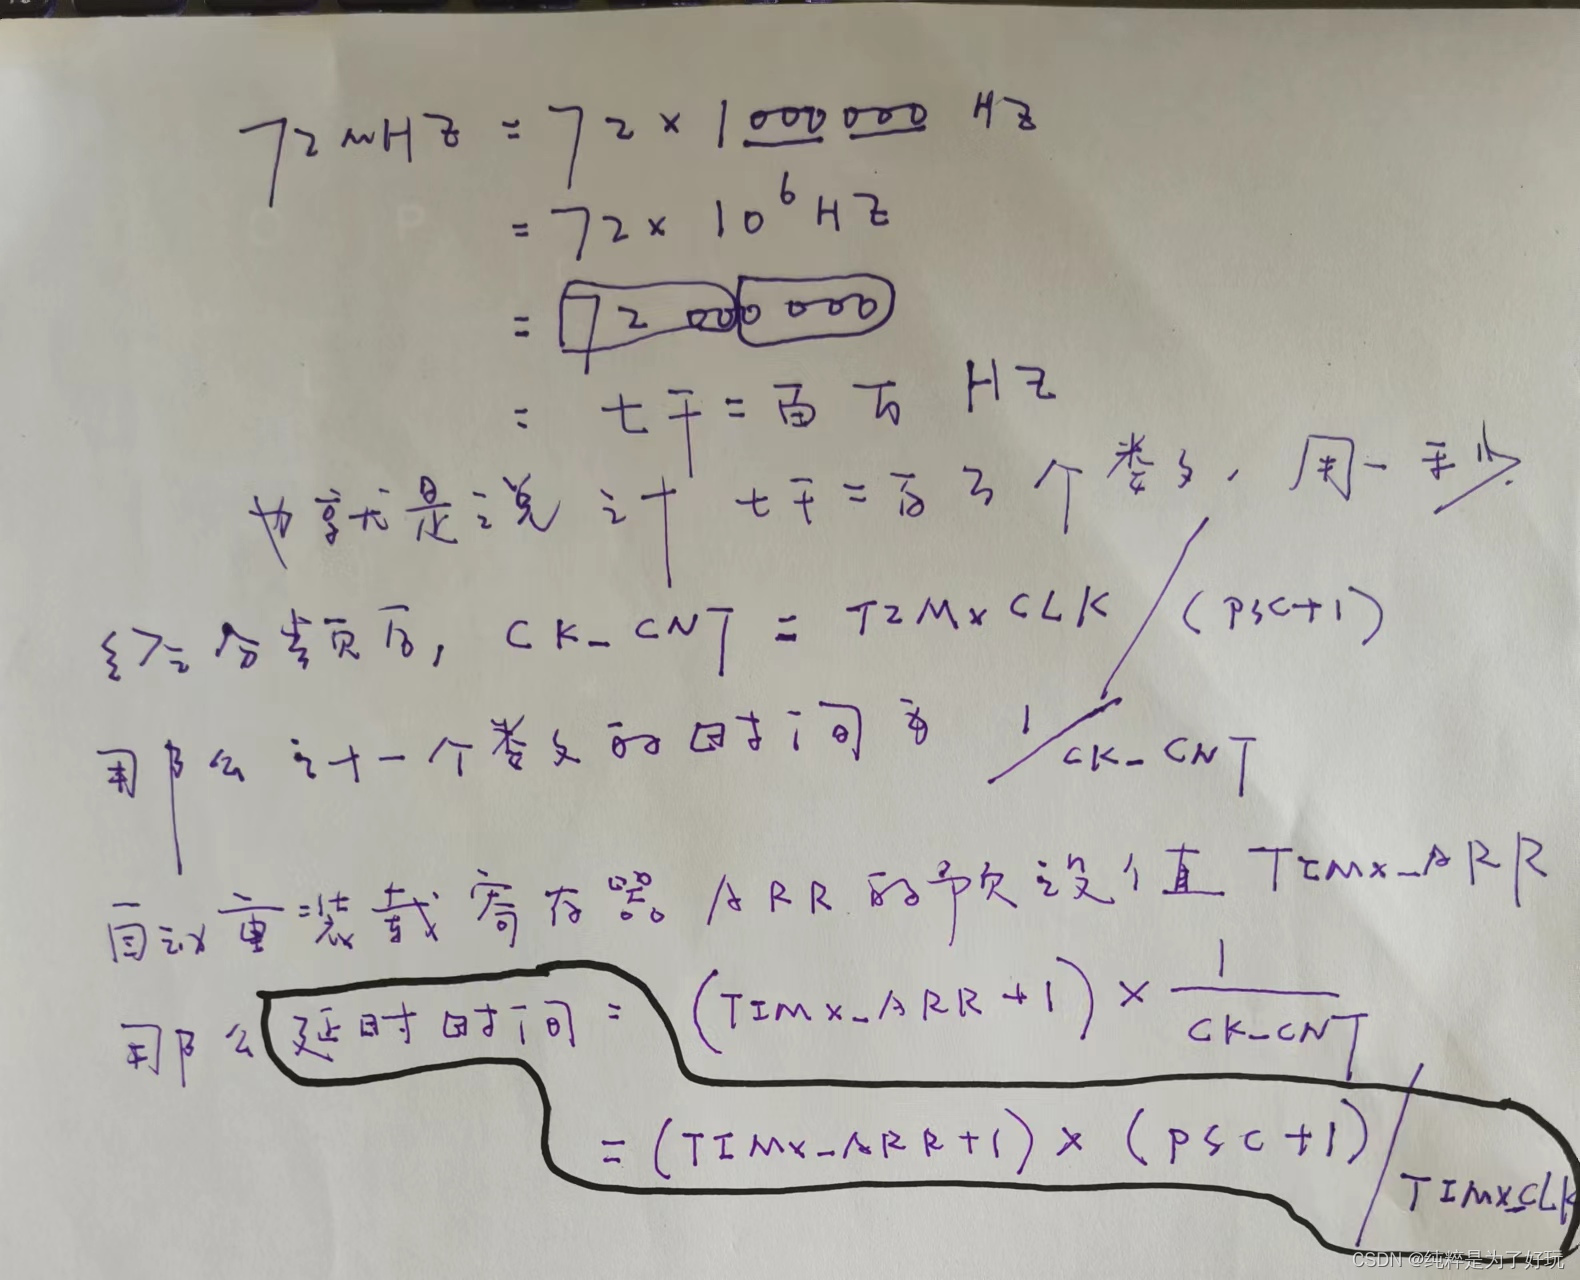 72MHZ = 72 × 1000000 HZ
= 72 × 10⁶ HZ
= 72000000
= 七千二百万 HZ
也就是说计七千二百万个数, 用一秒
经分频后, CK_CNT = TIMxCLK / (PSC+1)
那么计一个数的时间为 1/CK_CNT
自动重装载寄存器ARR的预设值TIMx_ARR
那么延时时间 = (TIMx_ARR+1) × 1/CK_CNT
= (TIMx_ARR+1) × (PSC+1) / TIMxCLK
CSDN @纯粹是为了好玩